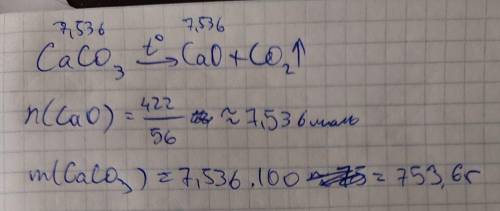 7,536 7,536
CaCO₃ t°→ CaO + CO₂↑
n(CaO) = 422/56 ≈ 7,536 моль
m(CaCO₃) = 7,536 · 100 = 753,6г